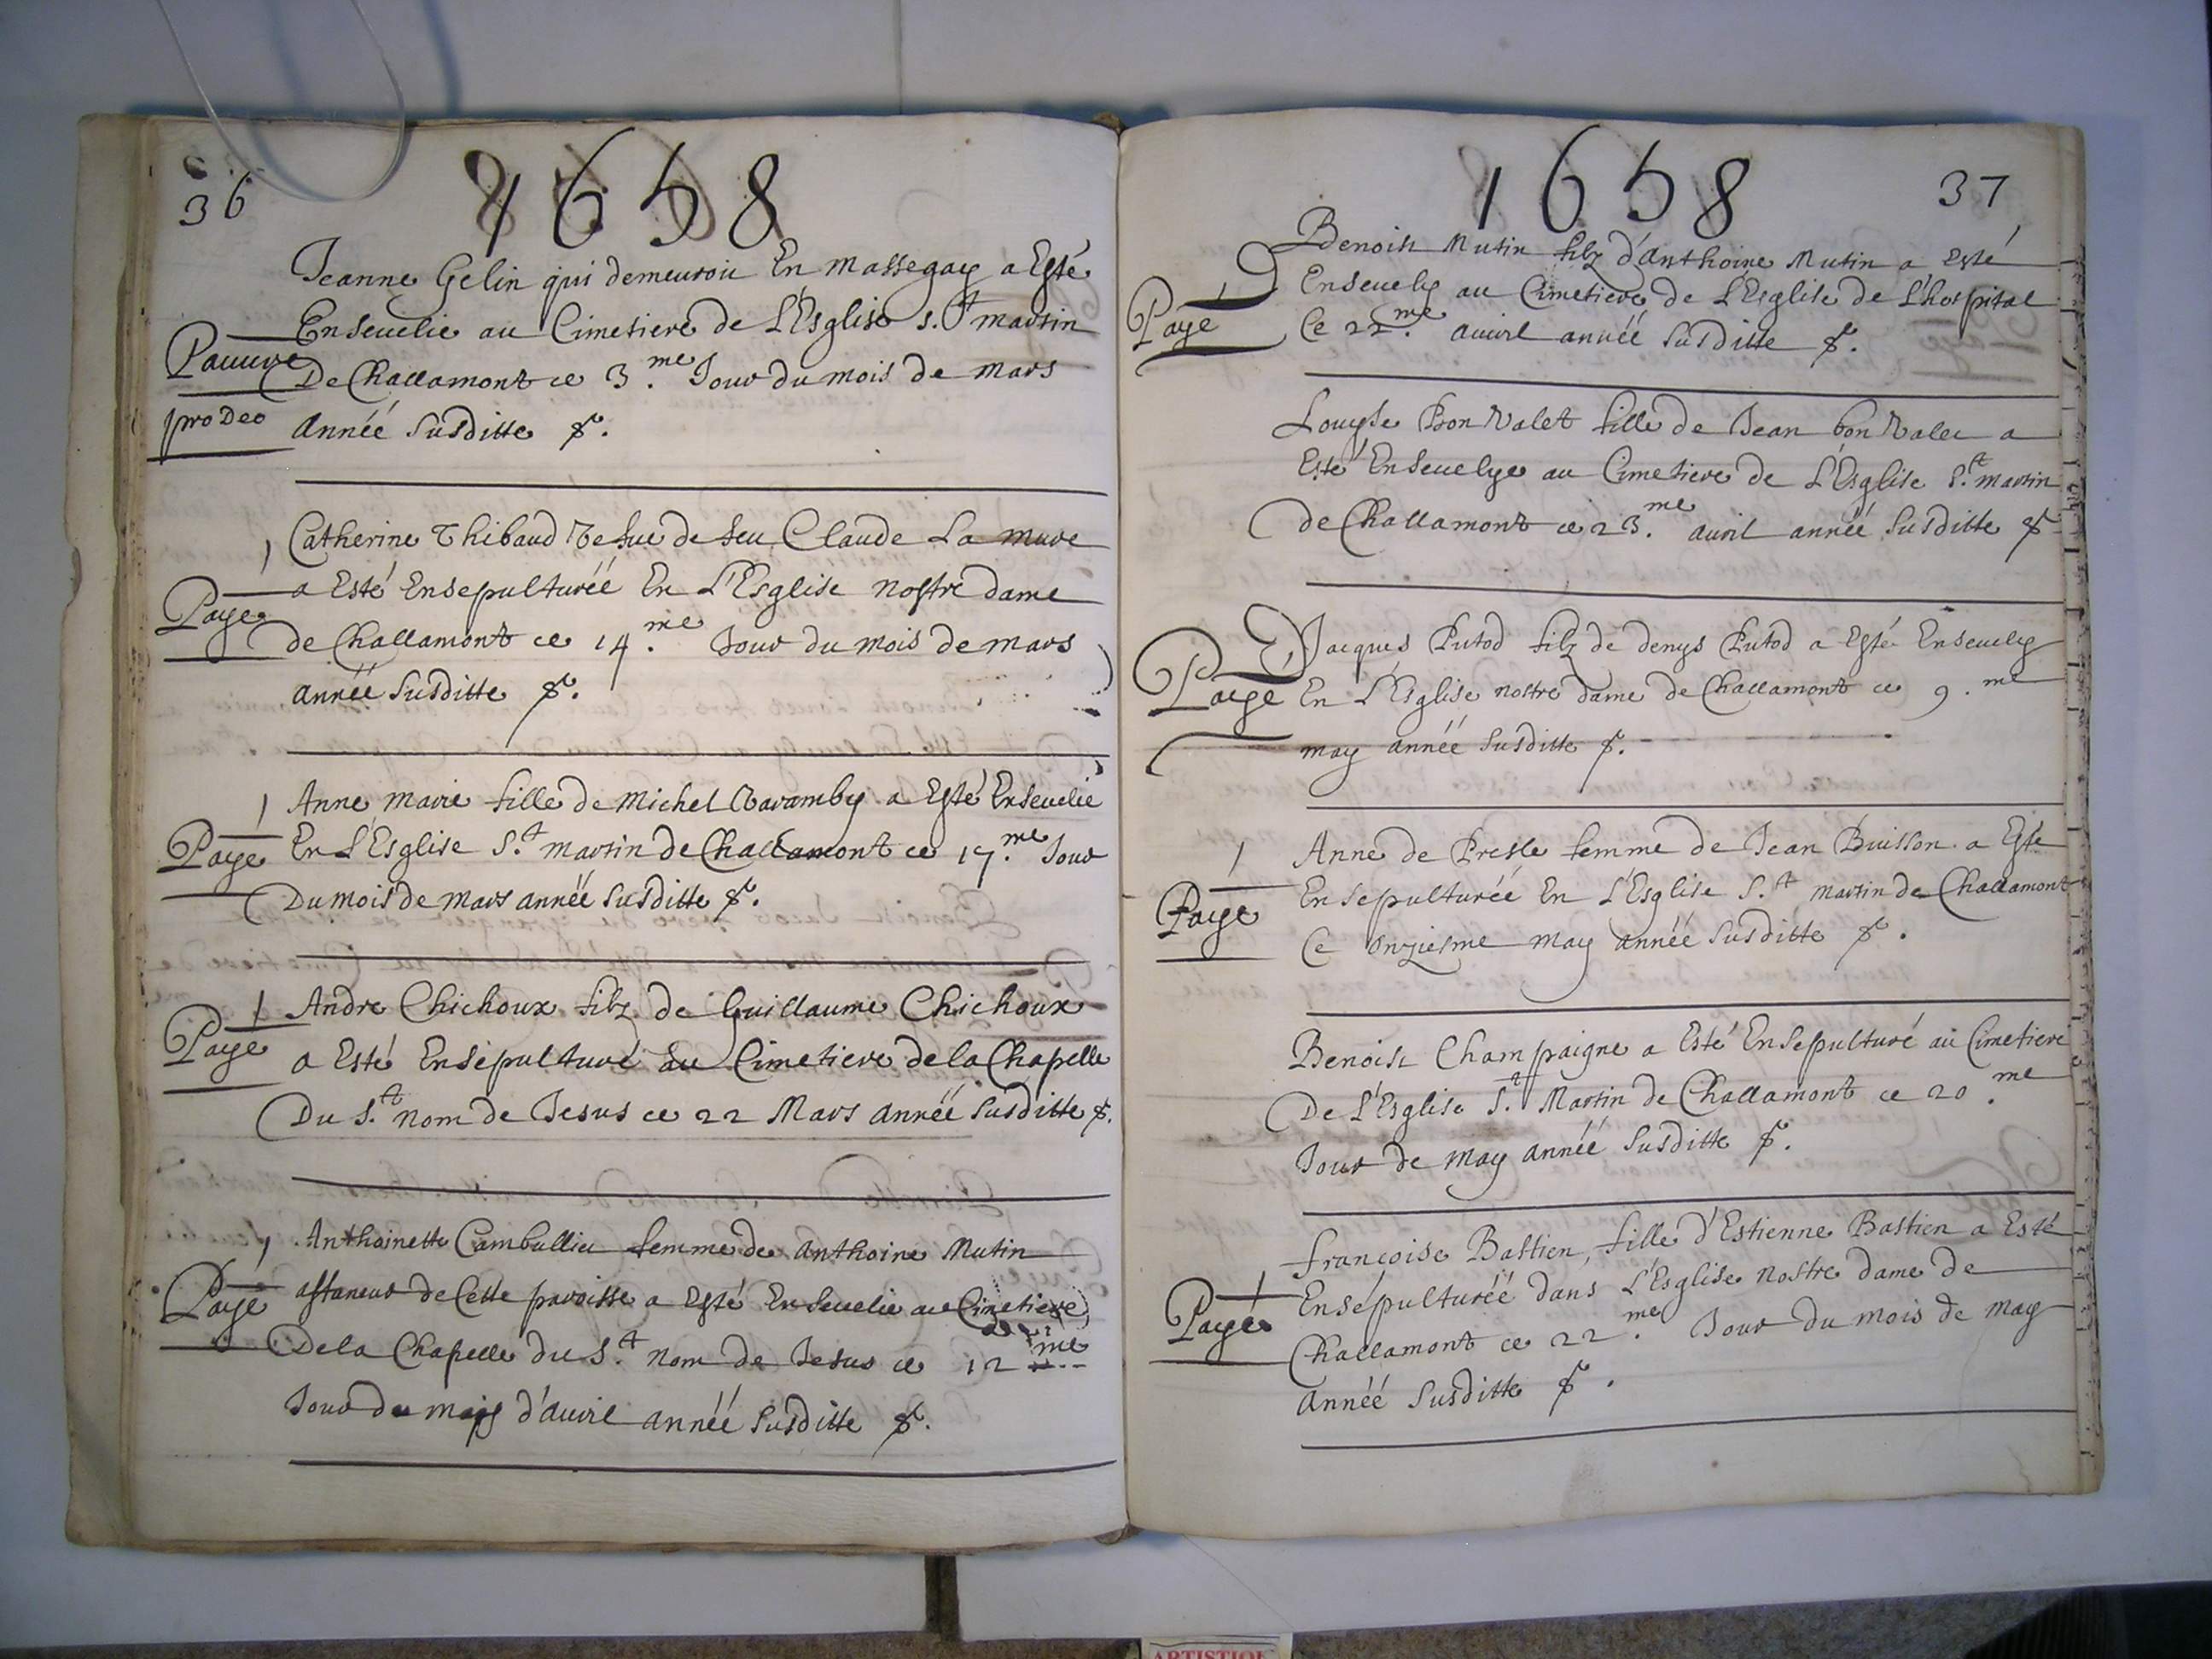 36
1658
Jeanne Gelin qui demeuroit En massegay a Esté
Ensevelie au Cimetiere de L'Esglise s.t martin
Pauvre
De Challamont ce 3.me Jour du mois de mars
pro Deo
Année susditte &.
Catherine Thibaud Vefue de feu Claude La mure
a Esté Ensepulturéé En L'Esglise nostre dame
Paye
de Challamont ce 14.me Jour du mois de mars
année susditte &.
Anne marie fille de Michel Varamby a Esté Ensevelie
Payé
En L'Esglise S.t martin de Challamont ce 17.me Jour
Du mois de mars année susditte &.
Andre Chichoux filz de Guillaume Chichoux
Paye
a Esté Ensépulturé au Cimetiere de la Chapelle
Du S.t nom de Jesus ce 22 Mars année susditte &.
Anthoinette Cambullier femme de anthoine Mutin
Payé
de Cette paroisse a Esté Ensevelie au Cimetiere
De la Chapelle du S.t nom de Jesus ce 12 me
Jour du d'auril année susditte &.
1658
37
Benoist Mutin filz d'anthoine Mutin a Esté
Ensevely au Cimetiere de L'Esglise de L'hospital
Payé
Ce 22.me auvril année susditte &.
Louyse Bon Valet fille de Jean bon Valet a
Esté Ensevelye au Cimetiere de L'Esglise S.t martin
de Challamont ce 23.me auril année susditte &
Jacques Putod filz de denys Putod a Esté Ensevely
Payé
En L'Esglise nostre dame de Challamont ce 9.me
may année susditte &.
Anne de Presle femme de Jean Buisson a Esté
Ensépulturéé En L'Esglise S.t martin de Challamont
Payé
Ce onziesme may année susditte &.
Benoist Champaigne a Esté Ensepulturé au Cimetiere
De L'Esglise S.t Martin de Challamont ce 20.me
Jour de may année susditte &.
françoise Bastien, fille d'Estienne Bastien a Esté
Ensépulturéé dans L'Esglise nostre dame de
Payé
Challamont ce 22.me Jour du mois de may
Année susditte &.